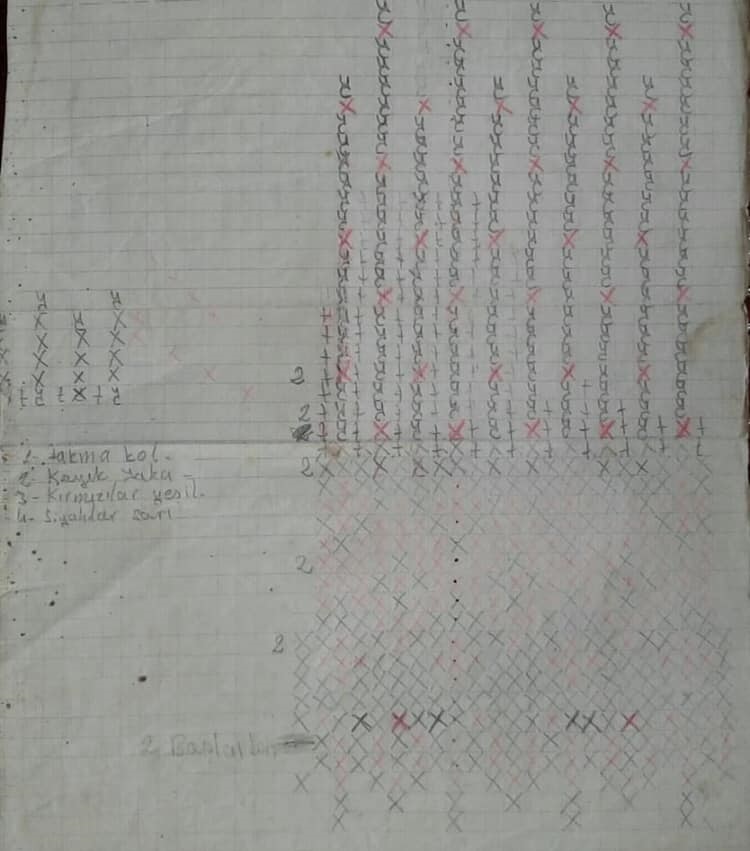 2
2
2
1- Takma kol.
2- Kayık yaka -
3- Kırmızılar yeşil.
4- Siyahlar sarı
2
2
2